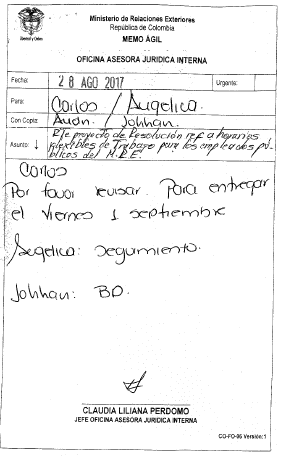 Ministerio de Relaciones Exteriores
República de Colombia
Libertad y Orden
MEMO ÁGIL
OFICINA ASESORA JURIDICA INTERNA
Fecha: 28 AGO 2017 Urgente:
Para: Carlos / Angelica.
Con Copia: / Johhan.
Asunto: ↓ proyecto de Resolución ref. a horarios
flexibles de Trabajo para los empleados pú-
blicos del M.R.E.
Carlos
Por favor revisar. Para entregar
el viernes 1 septiembre
Angelica: Seguimiento.
Johhan: BD.
CLAUDIA LILIANA PERDOMO
JEFE OFICINA ASESORA JURIDICA INTERNA
CO-FO-06 Versión:1